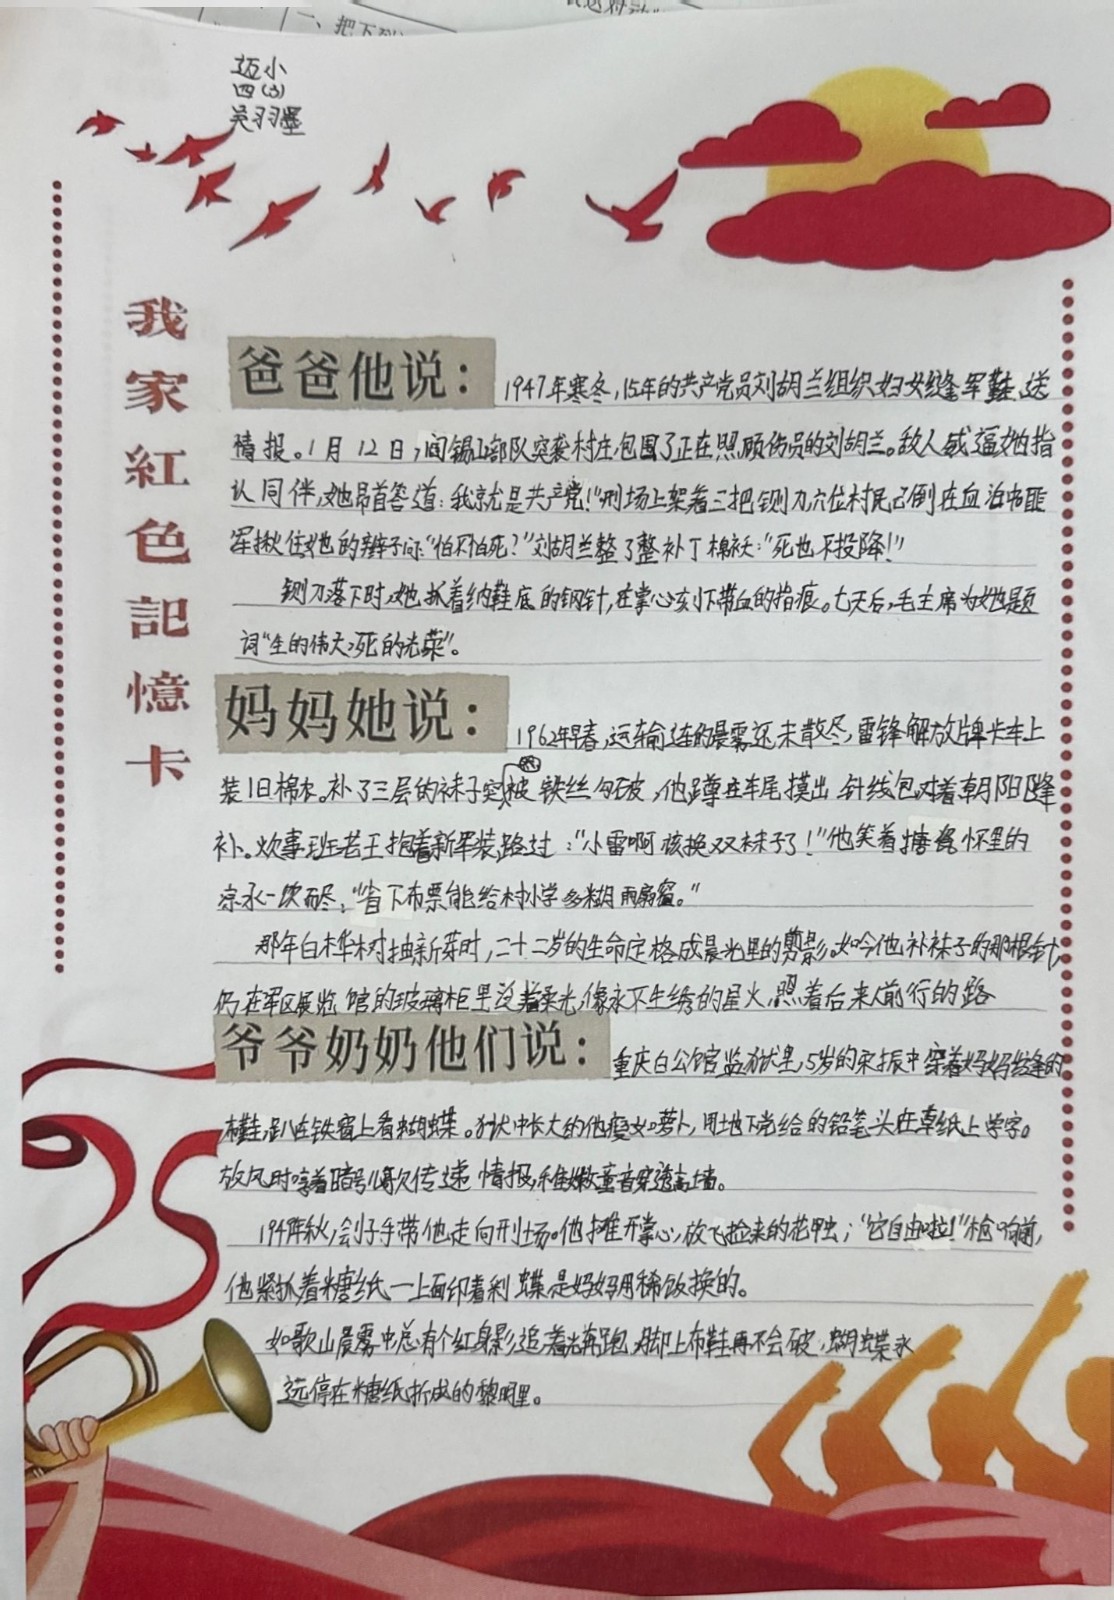 一、把下列
迈小
四(3)
吴羽墨
我家紅色記憶卡
爸爸他说：
1947年寒冬，15年的共产党员刘胡兰组织妇女缝军鞋、送
情报。1月12日，阎锡山部队突袭村庄，包围了正在照顾伤员的刘胡兰。敌人威逼她指
认同伴，她昂首答道：我就是共产党！"刑场上架着三把铡刀，六位村民已倒在血泊中匪
军揪住她的辫子问："怕不怕死？"刘胡兰整了整补丁棉袄："死也不投降！"
铡刀落下时，她抓着纳鞋底的钢针，在掌心刻下带血的指痕。七天后，毛主席为她题
词"生的伟大，死的光荣"。
妈妈她说：
1962年早春，运输连的晨雾还未散尽，雷锋解放牌卡车上
装旧棉衣。补了三层的袜子突被铁丝勾破，他蹲在车尾摸出针线包对着朝阳缝
补。炊事班老王抱着新军装路过："小雷啊该换双袜子了！"他笑着怀里的
凉水一饮而尽："省下布票能给村小学多糊两扇窗。"
那年白桦树抽新芽时，二十二岁的生命定格成晨光里的剪影。如今他补袜子的那根针
仍在军区展览馆的玻璃柜里泛着柔光，像永不生锈的星火，照着后来人前行的路
爷爷奶奶他们说：
重庆白公馆监狱里，5岁的宋振中穿着妈妈缝的
布鞋，趴在铁窗上看蝴蝶。狱中长大的他瘦如萝卜，用地下党给的铅笔头在草纸上学字。
放风时哼着暗号儿歌传递情报，稚嫩童音穿透高墙。
1949年秋，刽子手带他走向刑场。他摊开掌心，放飞捡来的花甲虫；"它自由啦！"枪响前，
他紧抓着糖纸一上面印着蝶是妈妈用稀饭换的。
如歌山晨雾中总有个红身影追着光奔跑，脚上布鞋再不会破，蝴蝶永
远停在糖纸折成的黎明里。